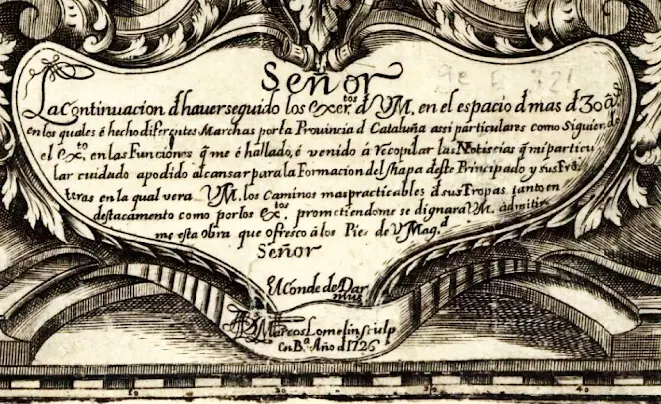 Señor
La Continuacion đ haver seguido los exer.tos đ VM. en el espacio đ mas đ 30 añ.s
en los quales é hecho diferentes Marchas por la Provincia đ Cataluña assi particulares como Siguiendo
el ex.to, en las Funciones q̃ me é hallado, é venido à recopilar las Notiscias q̃ mi particu
lar cuidado apodido alcansar para la Formacion del Mapa deste Principado y sus Fro.
teras en la qual vera VM. los Caminos mas practicables đ sus Tropas tanto en
destacamento como por los ex.tos prometiendome se dignara VM. admitir
me esta Obra que ofresco à los Pies de VMag.d
Señor
El Conde de Dar
nius
Marcos Lomelin sculp
en B.a Año d 1726
ge F 321
10 20 30 40